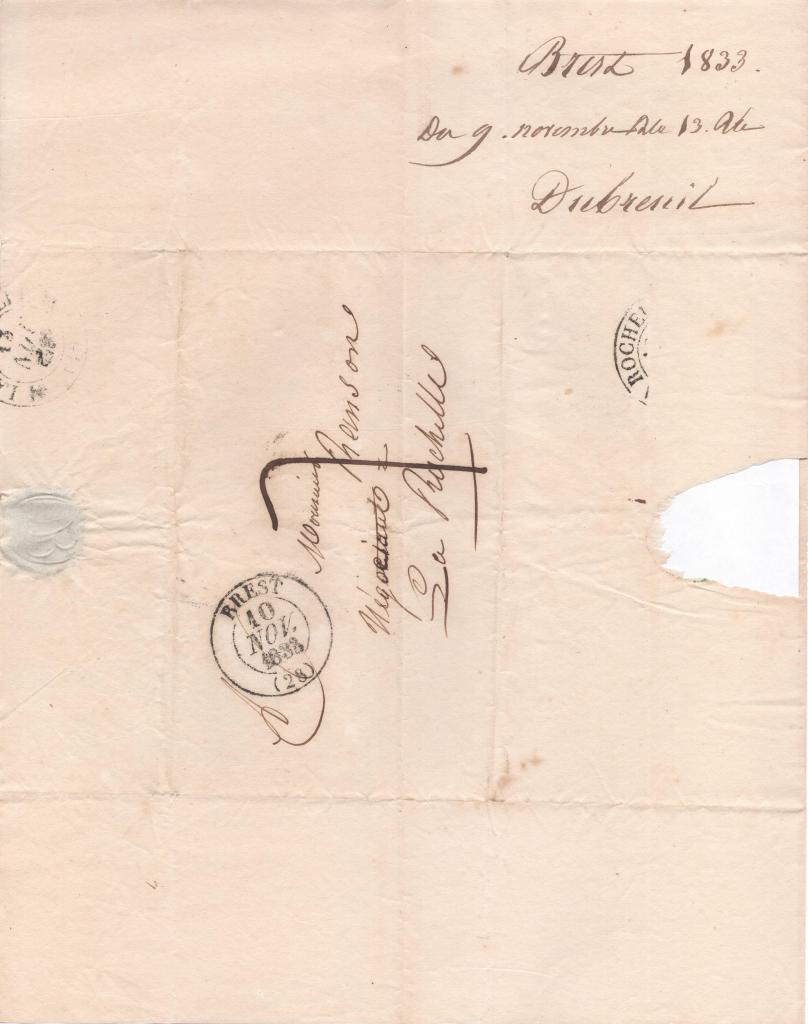 Brest 1833.
Du 9. novembre Rle 13. dt
Dubreuil
A
Monsieur
Ranson
Négociant
La Rochelle
7
BREST
10
NOV.
1833
(28)
ROCHE